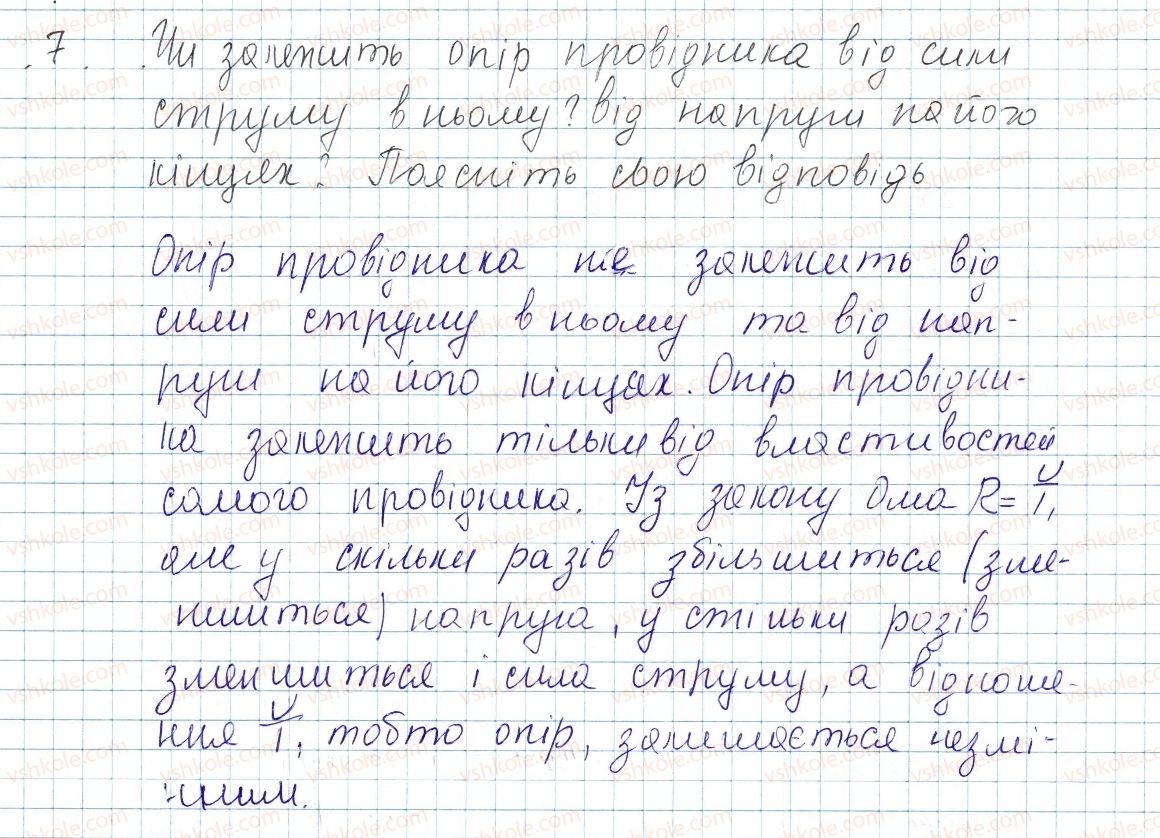 7. Чи залежить опір провідника від сили
струму в ньому? від напруги на його
кінцях? Поясніть свою відповідь
Опір провідника не залежить від
сили струму в ньому та від нап-
руги на його кінцях. Опір провідни-
ка залежить тільки від властивостей
самого провідника. Із закону Ома R = U/I,
але у скільки разів збільшиться (зме-
ншиться) напруга, у стільки разів
зменшиться і сила струму, а відноше-
ння U/I, тобто опір, залишається незмі-
нним.